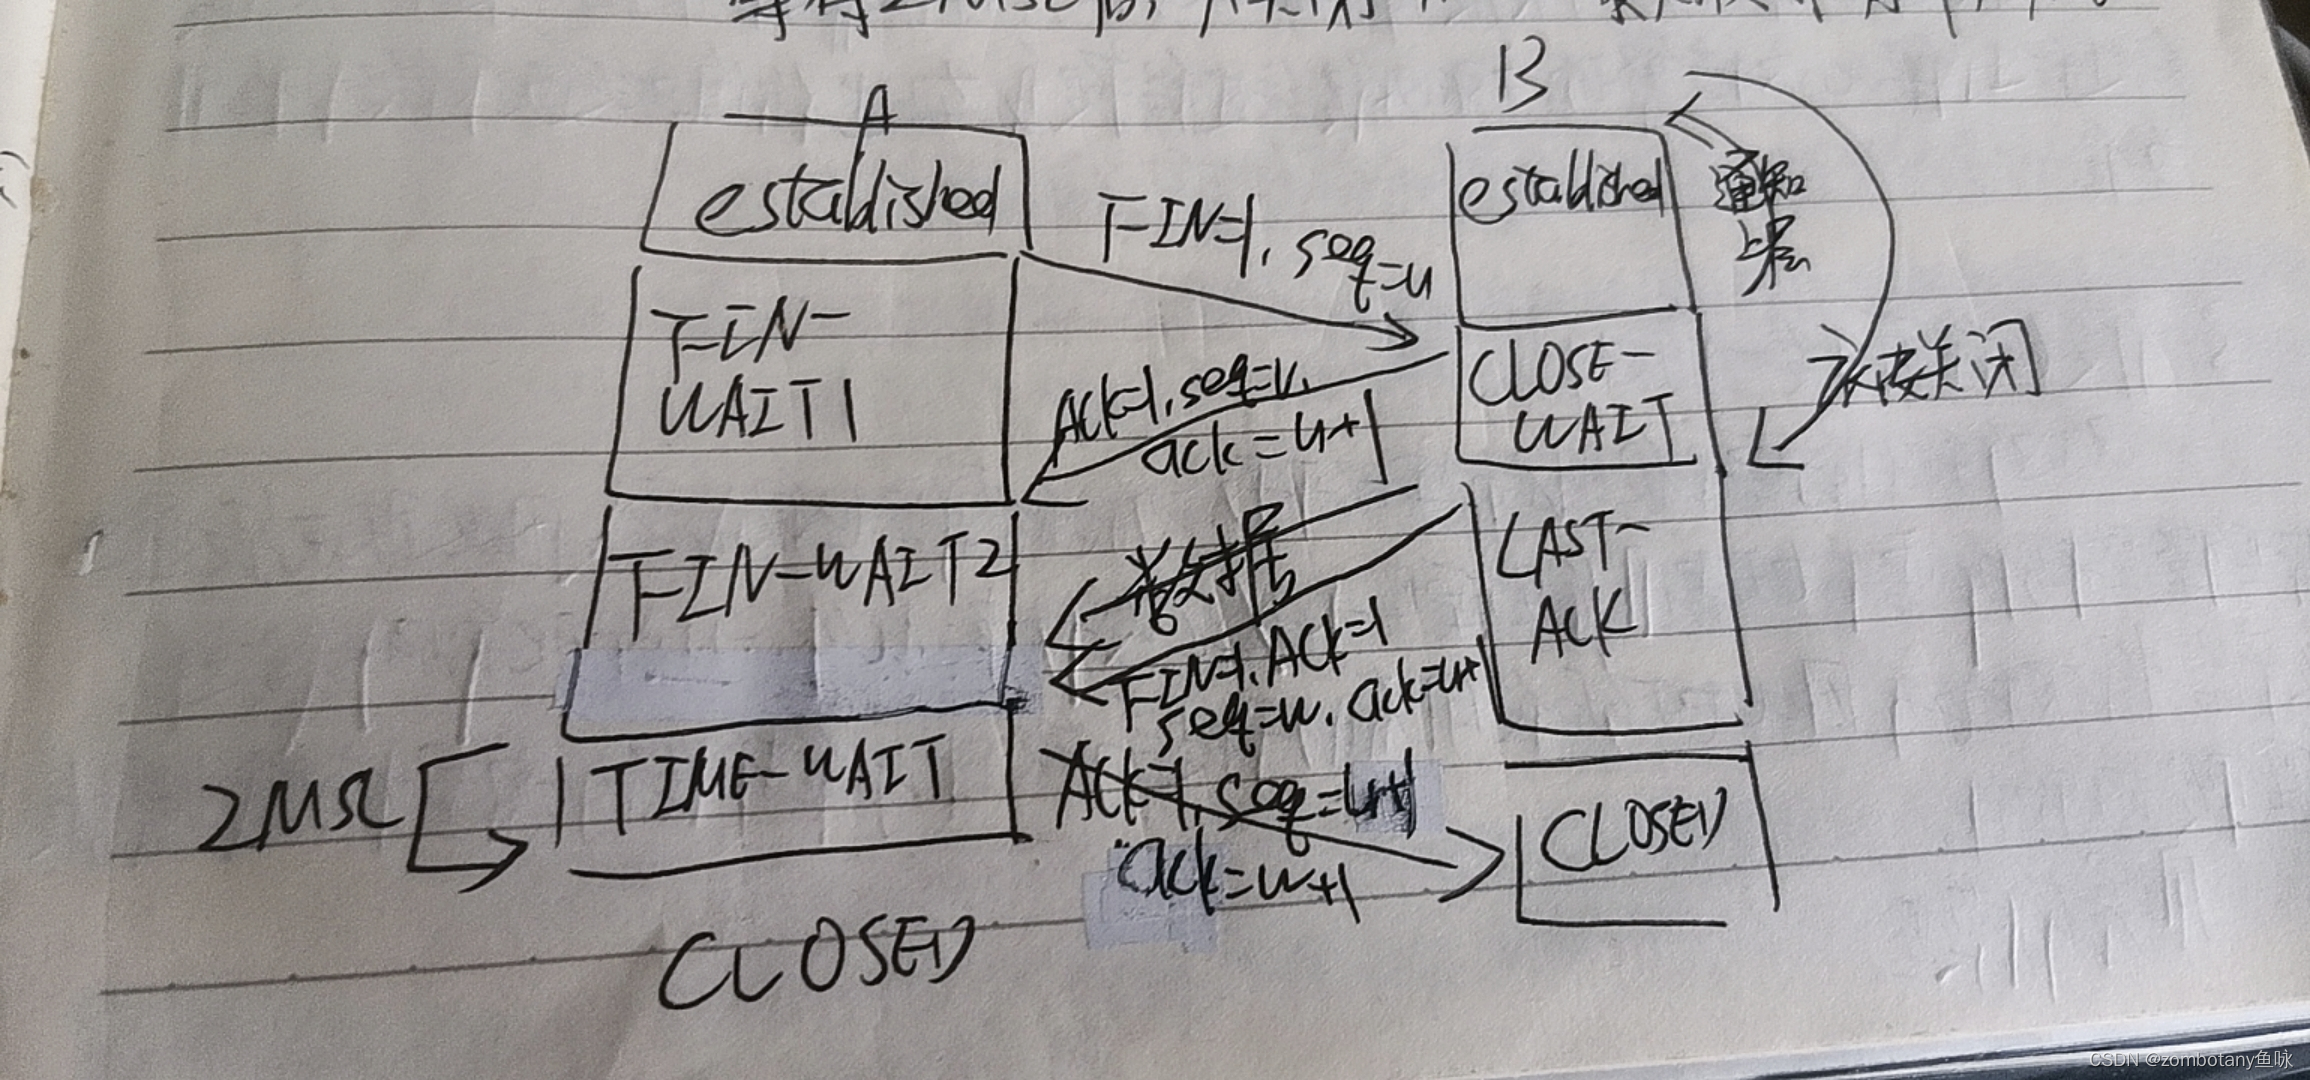 A
B
established
established
通知
上层
FIN=1, seq=u
FIN-
WAIT1
CLOSE-
WAIT
被动关闭
ACK=1, seq=v,
ack=u+1
FIN-WAIT2
数据
LAST-
ACK
FIN=1, ACK=1
seq=w, ack=u+1
2MSL
TIME-WAIT
ACK=1, seq=u+1
ack=w+1
CLOSED
CLOSED
CSDN @zombotany鱼咏